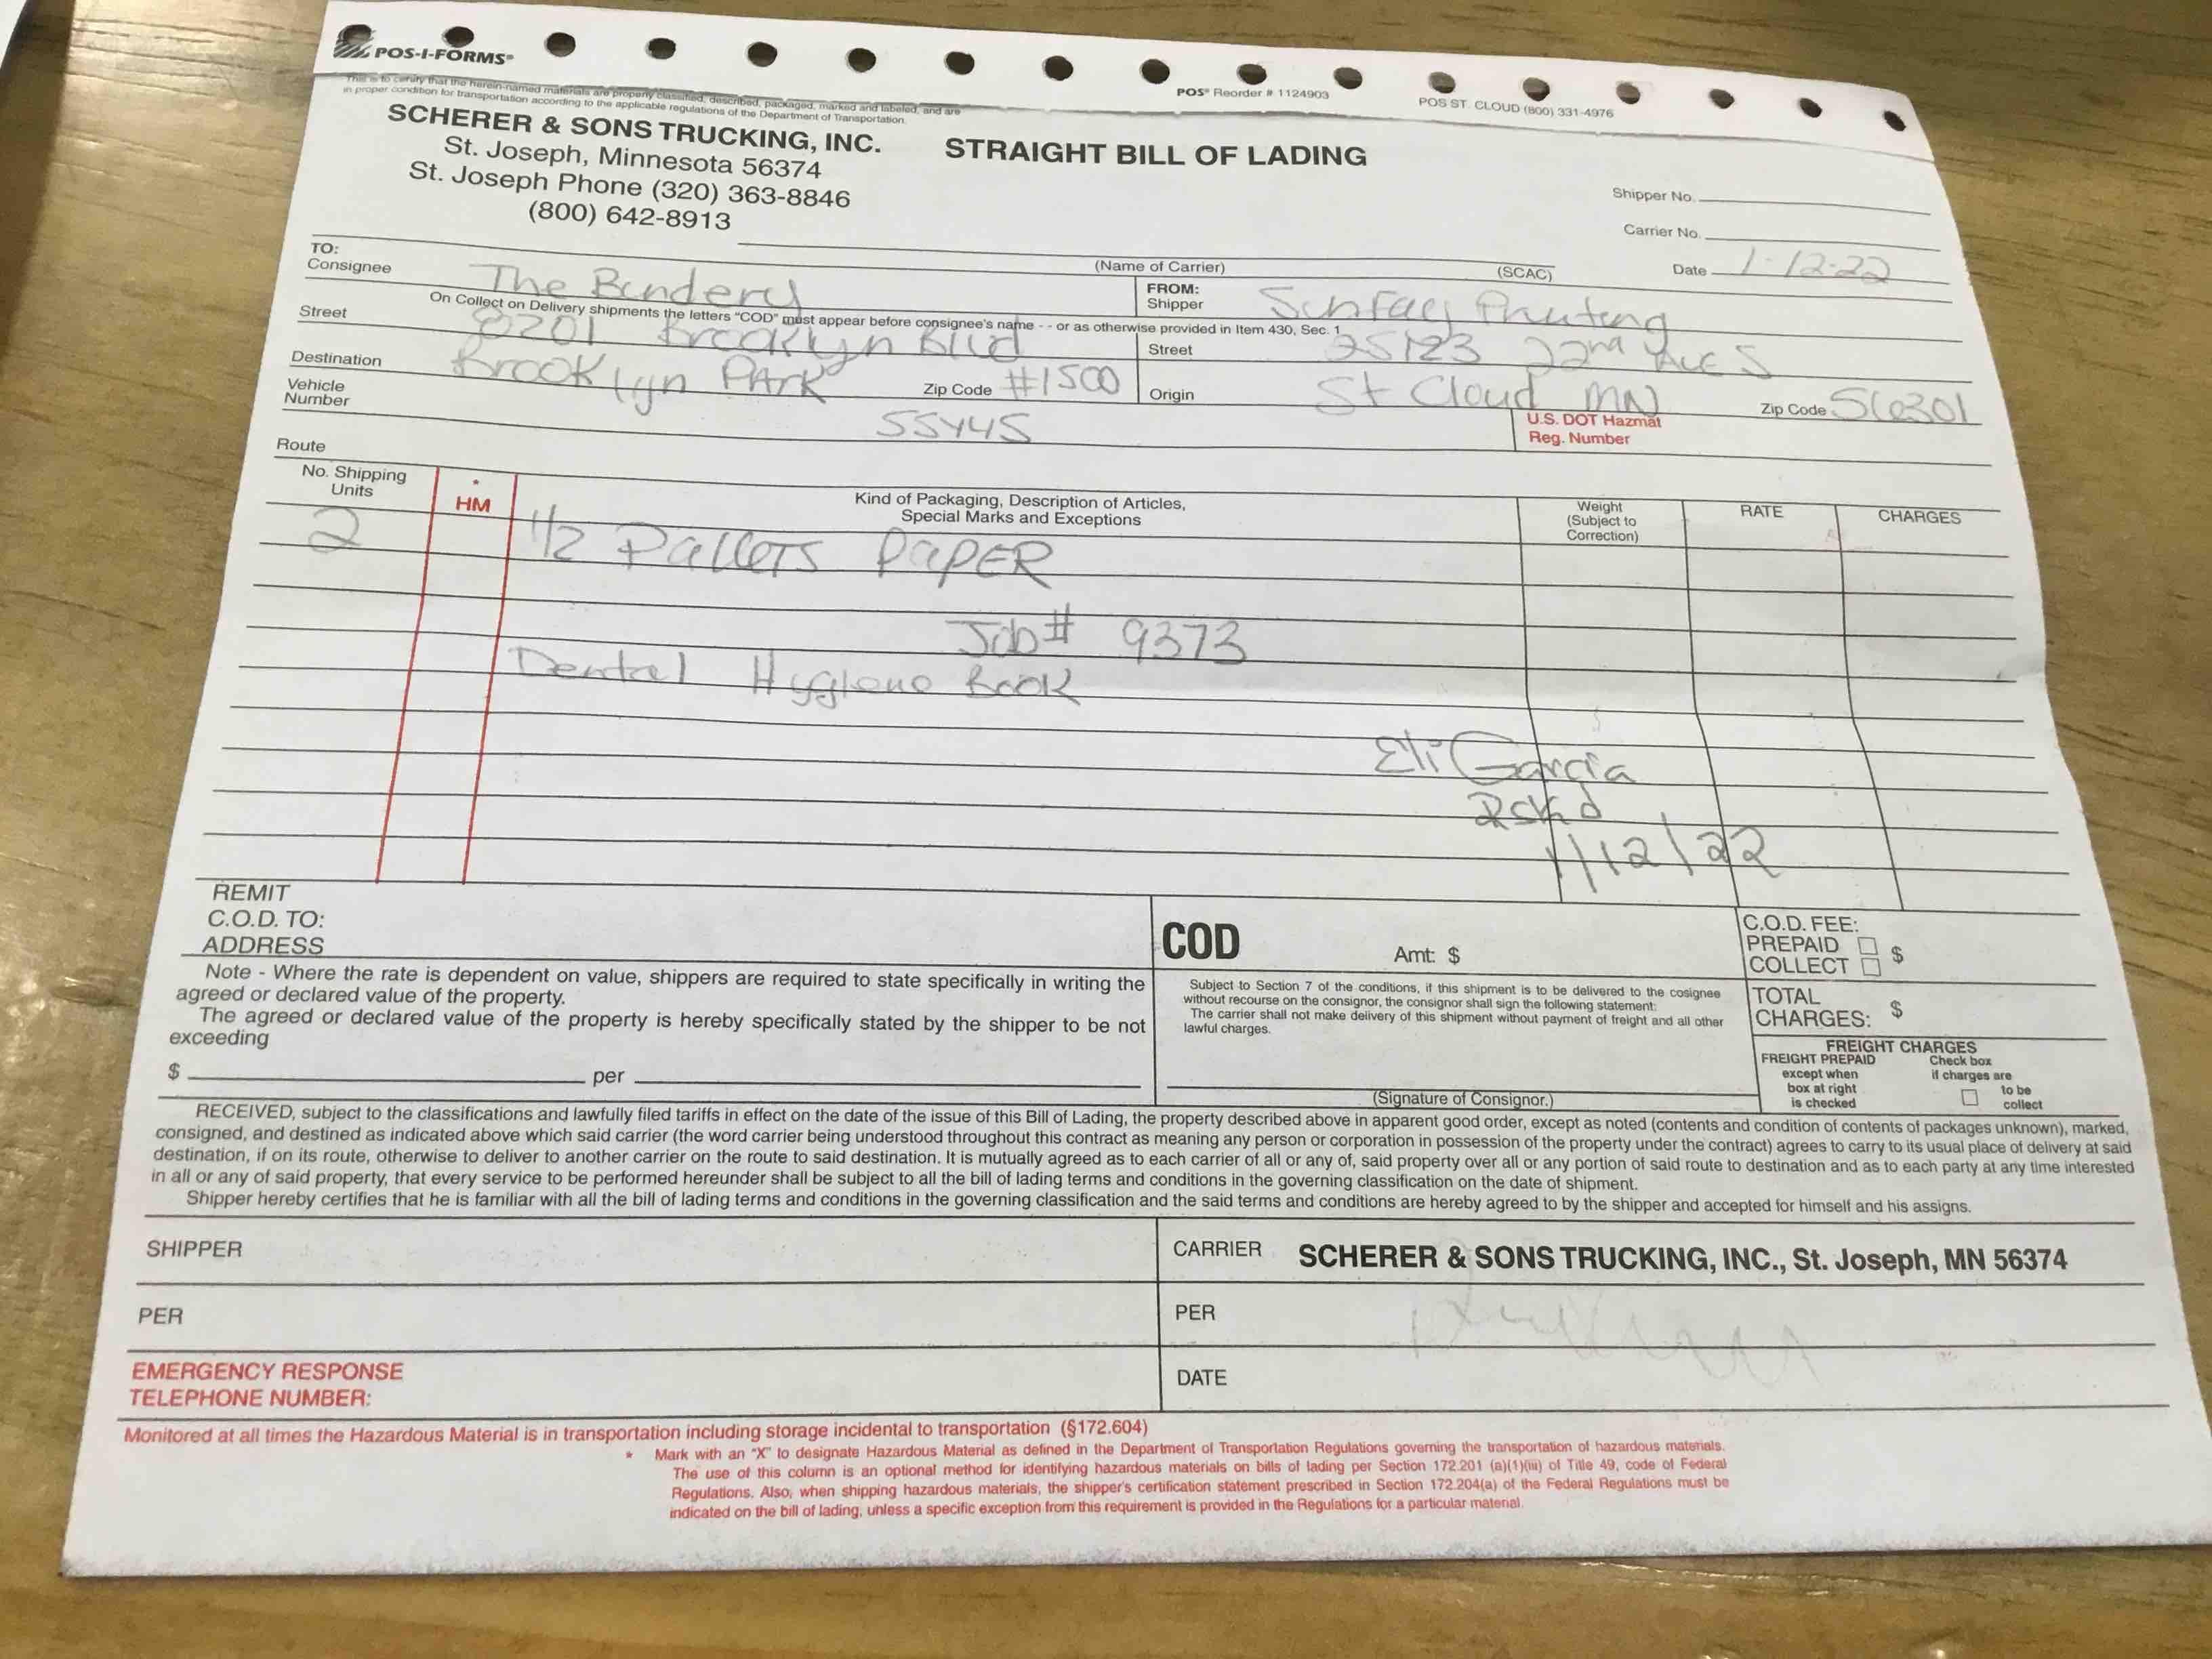 POS-I-FORMS®
This is to certify that the herein-named materials are properly classified, described, packaged, marked and labeled, and are
in proper condition for transportation according to the applicable regulations of the Department of Transportation.
POS® Reorder # 1124903
POS ST. CLOUD (800) 331-4976
SCHERER & SONS TRUCKING, INC.
St. Joseph, Minnesota 56374
St. Joseph Phone (320) 363-8846
(800) 642-8913
STRAIGHT BILL OF LADING
Shipper No.
Carrier No.
Date 1-12-22
(Name of Carrier) (SCAC)
TO:
Consignee The Bindery
On Collect on Delivery shipments the letters "COD" must appear before consignee's name - - or as otherwise provided in Item 430, Sec. 1
Street 8201 Brooklyn Blvd
Destination Brooklyn PArk Zip Code #1500
55445
Vehicle
Number
FROM:
Shipper Printing
Street 25123 22nd Ave S
Origin St Cloud MN Zip Code 56301
U.S. DOT Hazmat
Reg. Number
Route
No. Shipping
Units
*
HM
Kind of Packaging, Description of Articles,
Special Marks and Exceptions
Weight
(Subject to
Correction)
RATE
CHARGES
2 1/2 PallETS PaPER
Job# 9373
Dental Hygiene Book
Eli Garcia
1/12/22
REMIT
C.O.D. TO:
ADDRESS
COD Amt: $
C.O.D. FEE:
PREPAID
COLLECT $
Note - Where the rate is dependent on value, shippers are required to state specifically in writing the
agreed or declared value of the property.
The agreed or declared value of the property is hereby specifically stated by the shipper to be not
exceeding
$ per
Subject to Section 7 of the conditions, if this shipment is to be delivered to the cosignee
without recourse on the consignor, the consignor shall sign the following statement:
The carrier shall not make delivery of this shipment without payment of freight and all other
lawful charges.
(Signature of Consignor.)
TOTAL
CHARGES: $
FREIGHT CHARGES
FREIGHT PREPAID
except when
box at right
is checked
Check box
if charges are
to be
collect
RECEIVED, subject to the classifications and lawfully filed tariffs in effect on the date of the issue of this Bill of Lading, the property described above in apparent good order, except as noted (contents and condition of contents of packages unknown), marked,
consigned, and destined as indicated above which said carrier (the word carrier being understood throughout this contract as meaning any person or corporation in possession of the property under the contract) agrees to carry to its usual place of delivery at said
destination, if on its route, otherwise to deliver to another carrier on the route to said destination. It is mutually agreed as to each carrier of all or any of, said property over all or any portion of said route to destination and as to each party at any time interested
in all or any of said property, that every service to be performed hereunder shall be subject to all the bill of lading terms and conditions in the governing classification on the date of shipment.
Shipper hereby certifies that he is familiar with all the bill of lading terms and conditions in the governing classification and the said terms and conditions are hereby agreed to by the shipper and accepted for himself and his assigns.
SHIPPER
CARRIER SCHERER & SONS TRUCKING, INC., St. Joseph, MN 56374
PER
PER
EMERGENCY RESPONSE
TELEPHONE NUMBER:
DATE
Monitored at all times the Hazardous Material is in transportation including storage incidental to transportation (§172.604)
* Mark with an "X" to designate Hazardous Material as defined in the Department of Transportation Regulations governing the transportation of hazardous materials.
The use of this column is an optional method for identifying hazardous materials on bills of lading per Section 172.201 (a)(1)(iii) of Title 49, code of Federal
Regulations. Also, when shipping hazardous materials, the shipper's certification statement prescribed in Section 172.204(a) of the Federal Regulations must be
indicated on the bill of lading, unless a specific exception from this requirement is provided in the Regulations for a particular material.